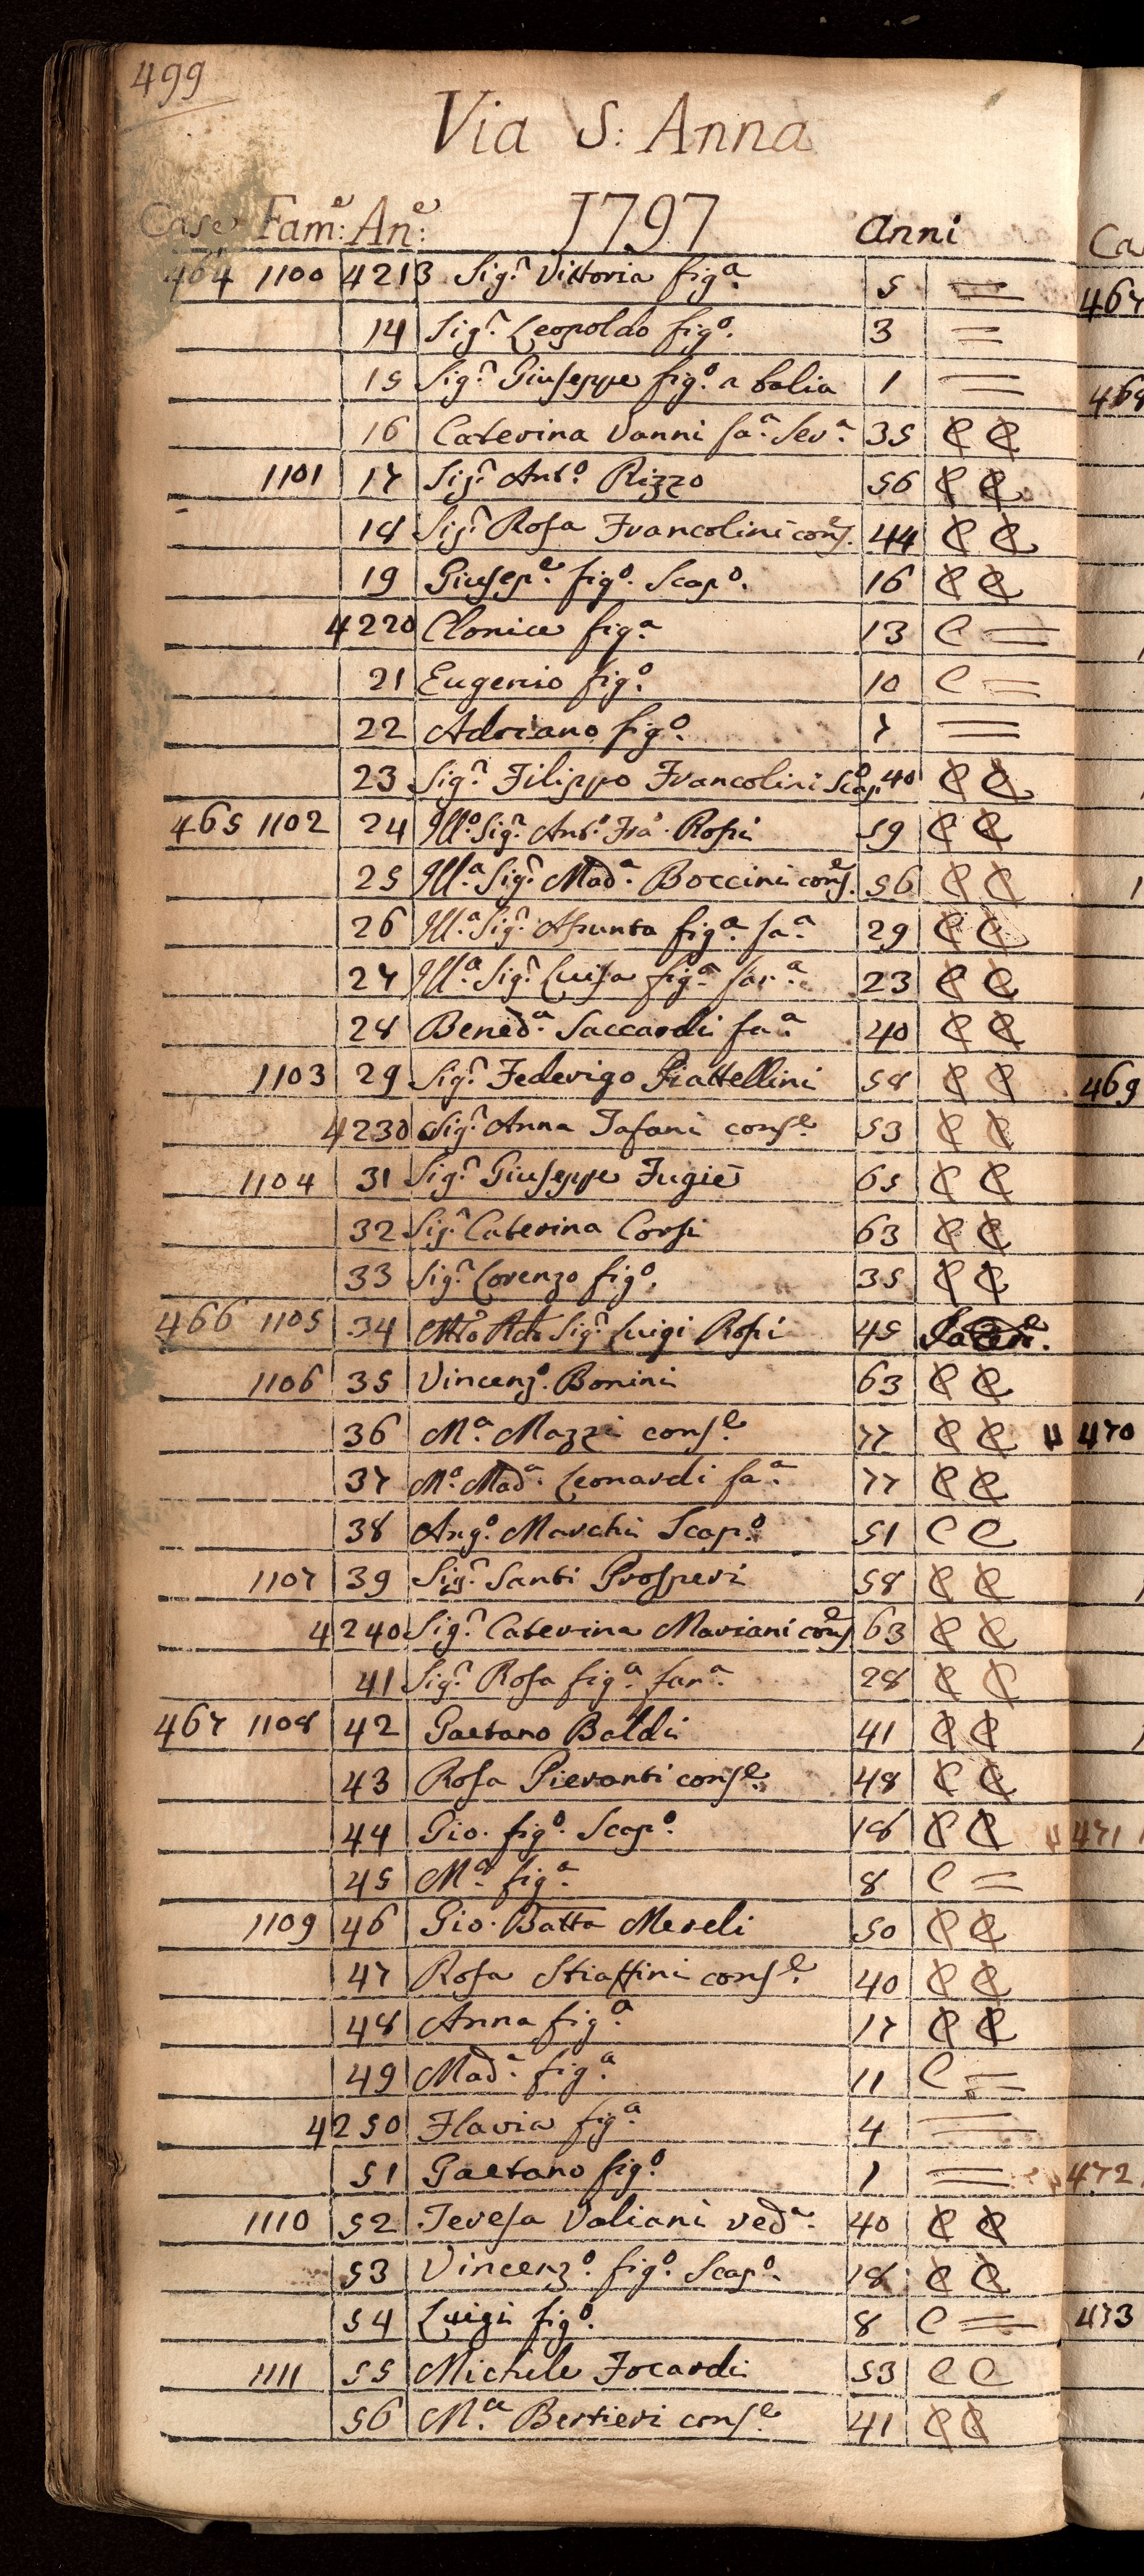 499
Via S: Anna
Case Fam:e An:e 1797 Anni
464 1100 4213 Sig.r Vittoria fig.a 5 =
14 Sig.r Leopoldo fig.o 3 =
15 Sig.r Giuseppe fig.o a balia 1 =
16 Caterina Vanni fa.a Ser.a 35 C C
1101 17 Sig.r Ant.o Rizzo 56 C C
18 Sig.r Rosa Francolini cons.e 44 C C
19 Giusep.e fig.o Scap.o 16 C C
4220 Clonice fig.a 13 C =
21 Eugenio fig.o 10 C =
22 Adriano fig.o 7 =
23 Sig.r Filippo Francolini Scap.o 40 C C
465 1102 24 Ill.o Sig.r Ant.o Fra.o Rossi 59 C C
25 Ill.a Sig.r Mad.a Boccini cons.e 56 C C
26 Ill.a Sig.r Assunta fig.a fa.a 29 C C
27 Ill.a Sig.r Luisa fig.a fa.a 23 C C
28 Bened.a Saccardi fa.a 40 C C
1103 29 Sig.r Federigo Piattellini 58 C C
4230 Sig.r Anna Tafani cons.e 53 C C
1104 31 Sig.r Giuseppe Fugie 65 C C
32 Sig.r Caterina Corsi 63 C C
33 Sig.r Lorenzo fig.o 35 C C
466 1105 34 Sig.r Luigi Rossi 45
1106 35 Vincenz.o Bonini 63 C C
36 M.a Mazzi cons.e 77 C C
37 M.a Mad.a Leonardi fa.a 77 C C
38 Ang.o Marchi Scap.o 51 C C
1107 39 Sig.r Santi Prosperi 58 C C
4240 Sig.r Caterina Mariani cons.e 63 C C
41 Sig.r Rosa fig.a fan.a 28 C C
467 1108 42 Gaetano Baldi 41 C C
43 Rosa Pieranti cons.e 48 C C
44 Gio. fig.o Scap.o 18 C C
45 M.a fig.a 8 C =
1109 46 Gio. Batta Mereli 50 C C
47 Rosa Stiattini cons.e 40 C C
48 Anna fig.a 17 C C
49 Mad.a fig.a 11 C =
4250 Flavia fig.a 4 =
51 Gaetano fig.o 1 =
1110 52 Teresa Valiani ved.a 40 C C
53 Vincenz.o fig.o Scap.o 18 C C
54 Luigi fig.o 8 C =
1111 55 Michele Focardi 53 C C
56 M.a Bertieri cons.e 41 C C
Ca
467
468
469
470
471
472
473